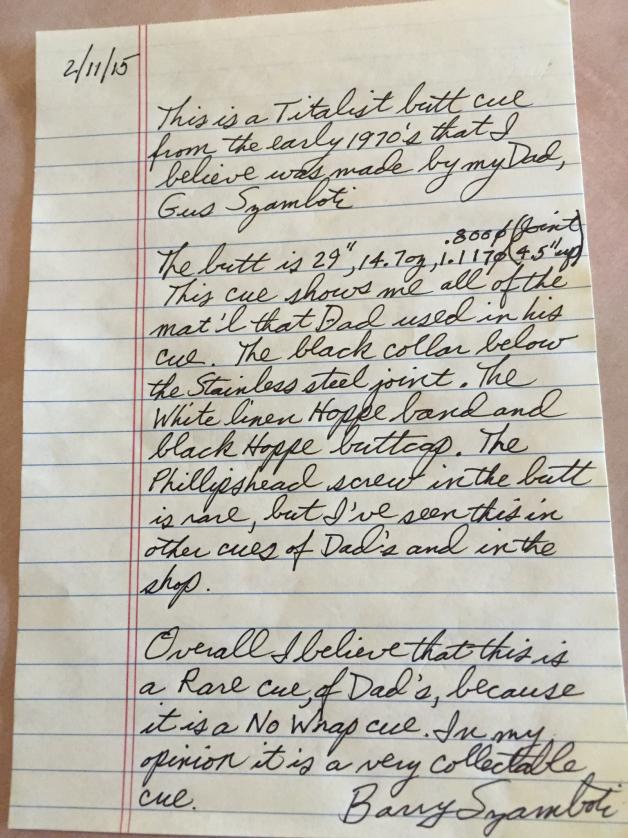 2/11/15
This is a Titalist butt cue
from the early 1970's that I
believe was made by my Dad,
Gus Szamboti
.800⌀ (Joint)
The butt is 29", 14.7oz, 1.117⌀ (4.5"up)
This cue shows me all of the
mat'l that Dad used in his
cue. The black collar below
the Stainless steel joint. The
White linen Hoppe band and
black Hoppe buttcap. The
Phillipshead screw in the butt
is rare, but I've seen this in
other cues of Dad's and in the
shop.
Overall I believe that this is
a Rare cue, of Dad's, because
it is a No Wrap cue. In my
opinion it is a very collectable
cue.
Barry Szamboti